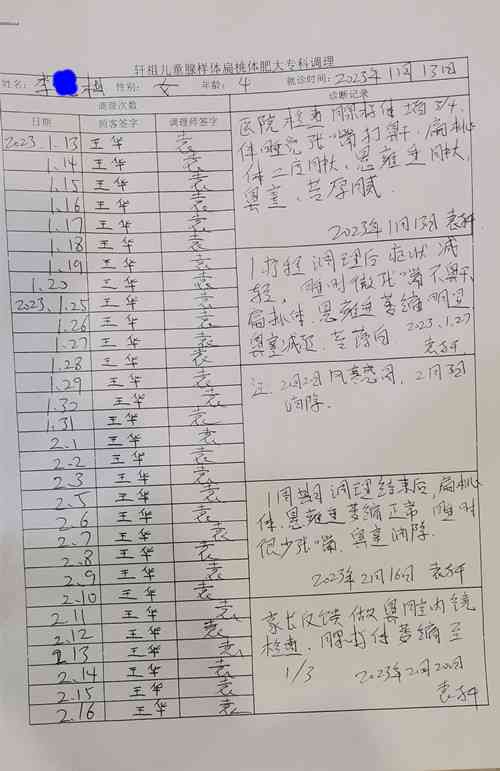 轩祖儿童腺样体扁桃体肥大专科调理
姓名: 李 性别: 女 年龄: 4 就诊时间: 2023年1月13日
调理次数 诊断记录
日期 顾客签字 调理师签字
2023.1.13 王华 袁
1.14 王华 袁
1.15 王华 袁
1.16 王华 袁
1.17 王华 袁
1.18 王华 袁
1.19 王华 袁
1.20 王华 袁
2023.1.25 王华 袁
1.26 王华 袁
1.27 王华 袁
1.28 王华 袁
1.29 王华 袁
1.30 王华 袁
1.31 王华 袁
2.1 王华 袁
2.2 王华 袁
2.3 王华 袁
2.5 王华 袁
2.6 王华 袁
2.7 王华 袁
2.8 王华 袁
2.9 王华 袁
2.10 王华 袁
2.11 王华 袁
2.12 王华 袁
2.13 王华 袁
2.14 王华 袁
2.15 王华 袁
2.16 王华 袁
医院检查腺样体堵3/4,
睡觉张嘴打鼾, 扁桃
体二度肿大, 悬雍垂肿大,
鼻塞, 舌厚腻.
2023年1月13日 袁
1疗程调理后症状减
轻, 睡时微张嘴不鼾,
扁桃体.悬雍垂萎缩明显
鼻塞减轻, 舌薄白 2023.1.27
袁
注: 2月2日风寒感冒, 2月5日
消除.
1周期调理结束后, 扁桃
体.悬雍垂萎缩正常, 睡时
很少张嘴. 鼻塞消除.
2023年2月16日 袁
家长反馈做鼻腔内镜
检查, 腺样体萎缩至
1/3 2023年2月20日
袁